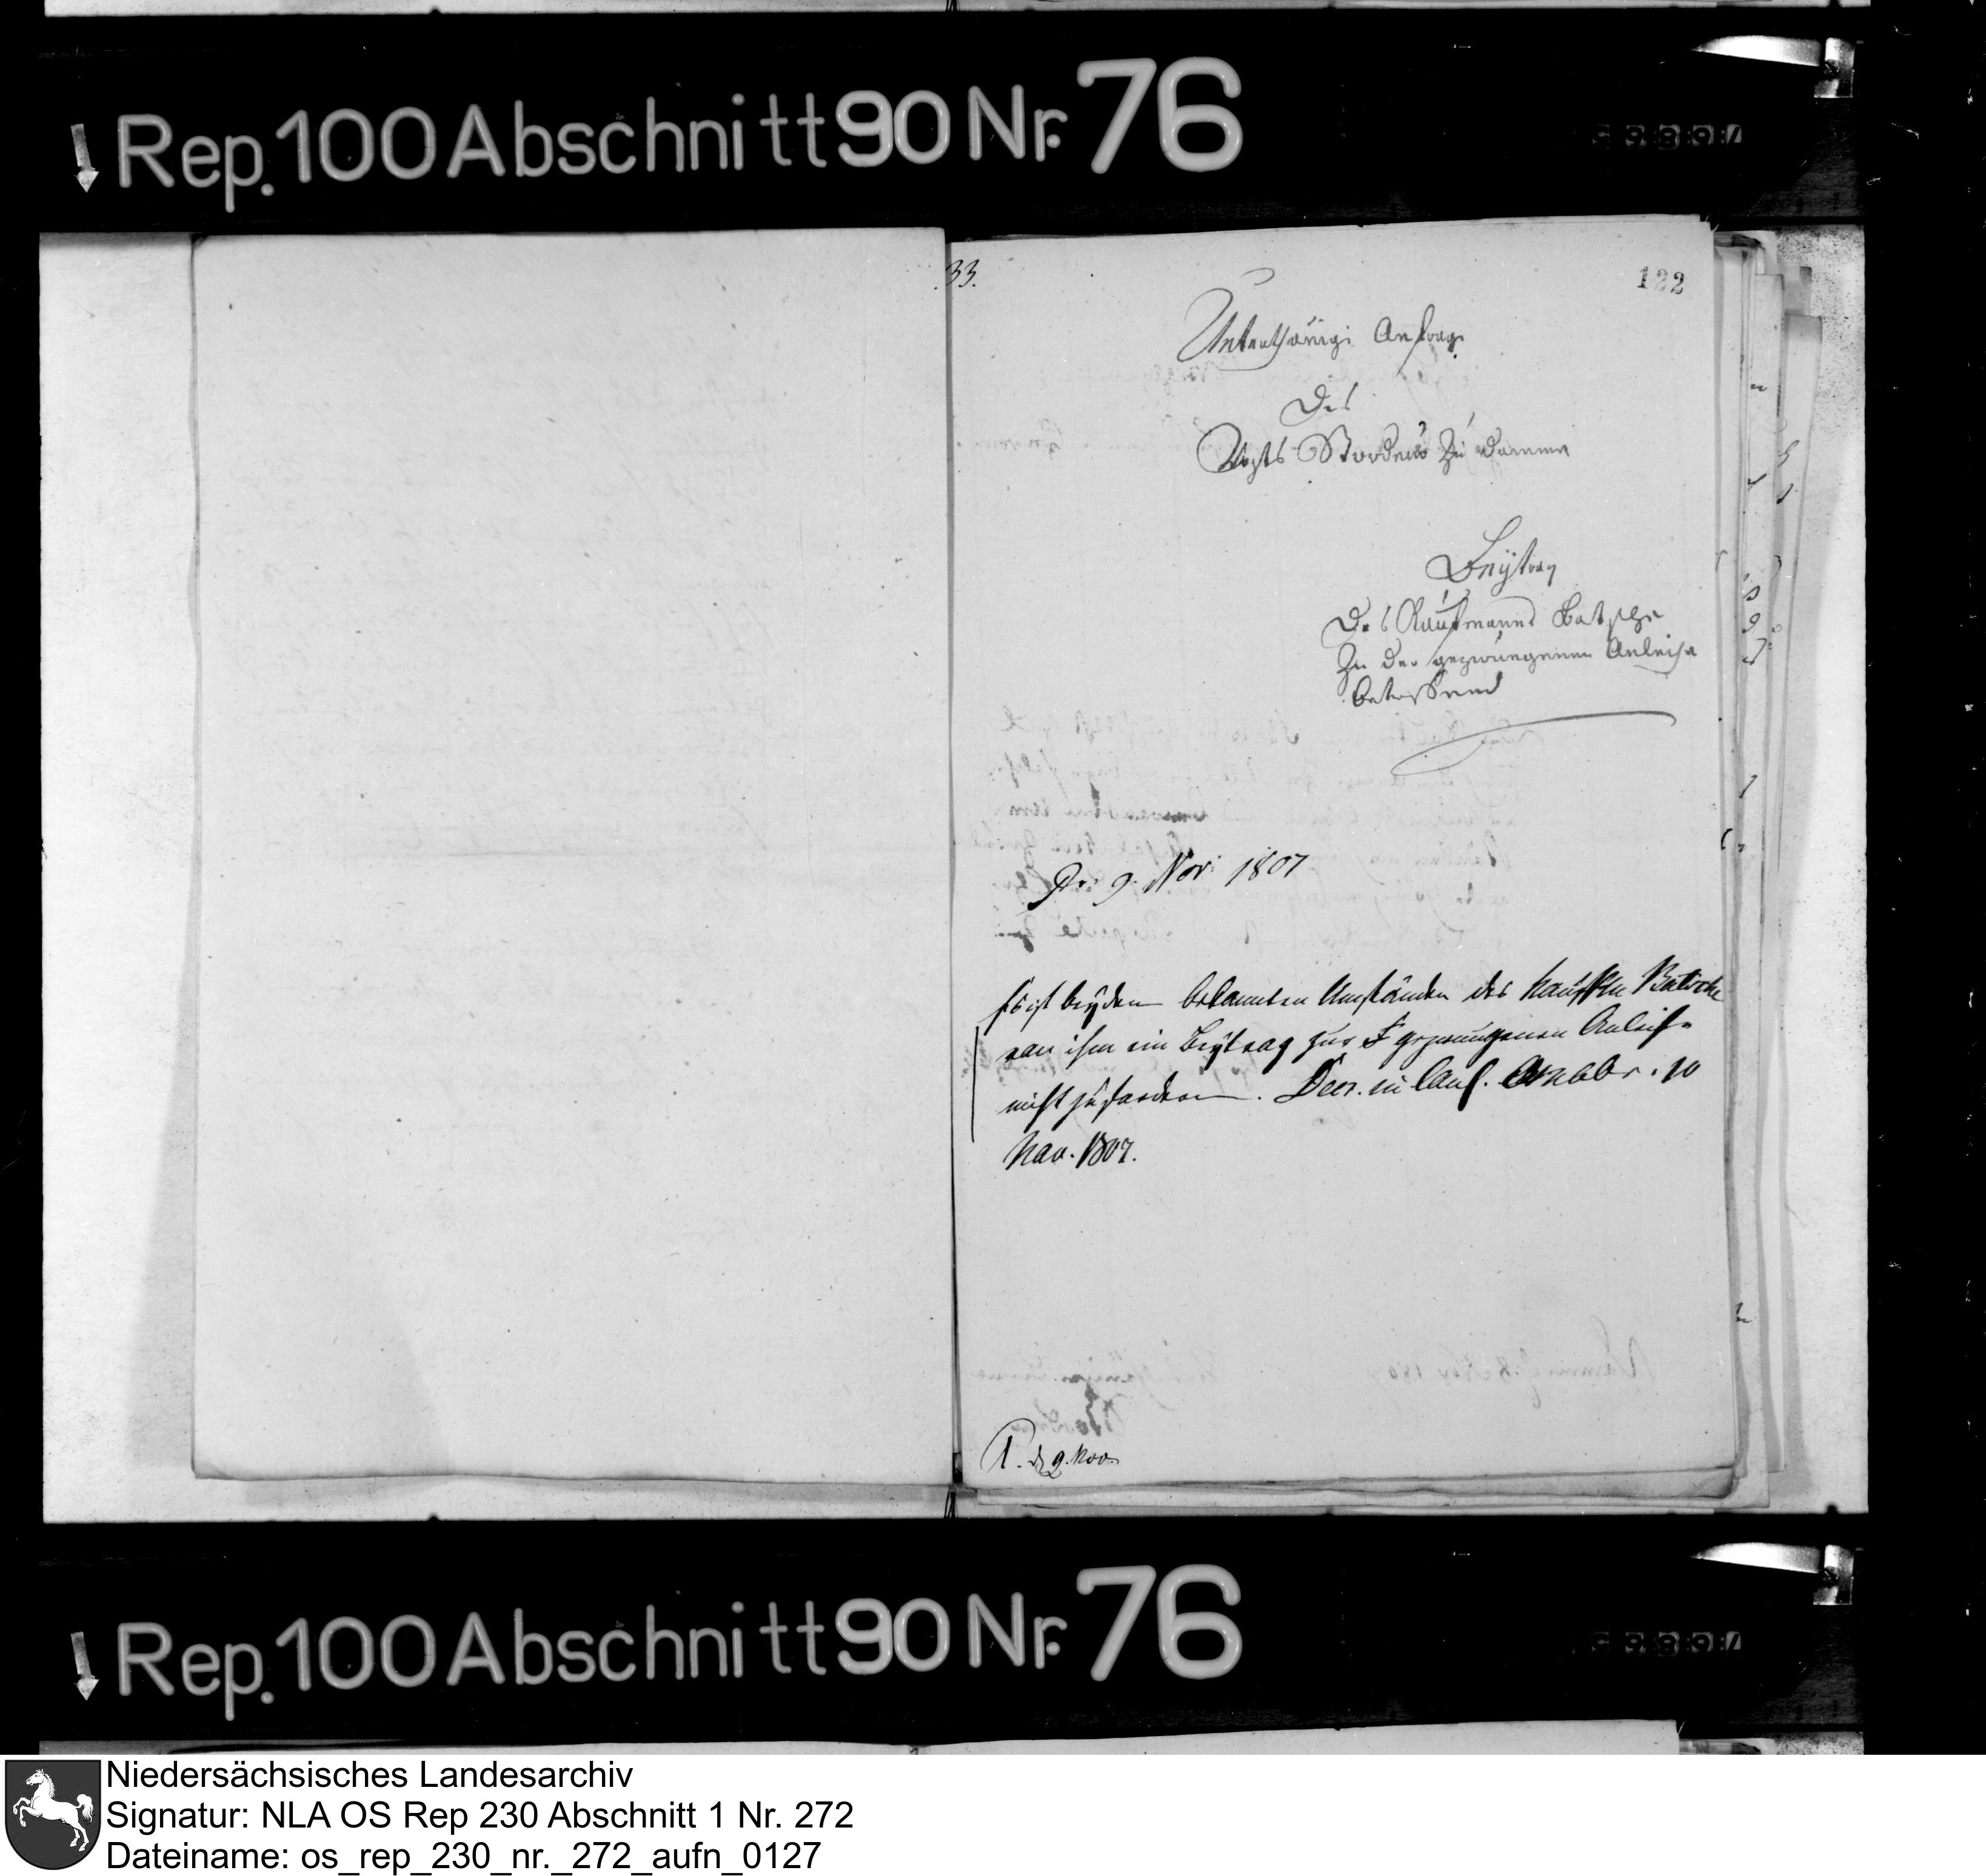 Rep. 100 Abschnitt 90 Nr. 76
33.
122
Unterthänige Anfrage
Des
Vogts Stordeur zu Damme
Beÿtrag
Des Kaufmanns Batsche
Zu der gezwungenen Anleihe
betreffend
Pr: 9. Nov: 1807
Es ist beÿ den bekannten Umständen des Kaufm Batsche
von ihm ein Beÿtrag zur gezwungenen Anleihe
nicht zu fordern. Decr. in Conf. Osnabr. 10
Nov. 1807.
P. d 9. Nov.
Rep. 100 Abschnitt 90 Nr. 76
Niedersächsisches Landesarchiv
Signatur: NLA OS Rep 230 Abschnitt 1 Nr. 272
Dateiname: os_rep_230_nr._272_aufn_0127